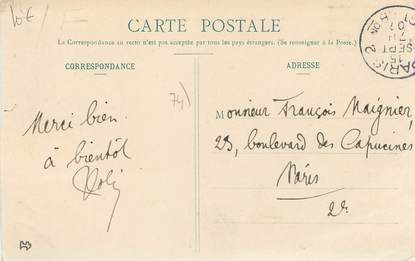 10€
CARTE POSTALE
La Correspondance au recto n'est pas acceptée par tous les pays étrangers. (Se renseigner à la Poste.)
CORRESPONDANCE
ADRESSE
PARIS 2
SEPT
07
74)
Merci bien
à bientôt
Monsieur François Maignier,
23, boulevard des Capucines
Paris
2e